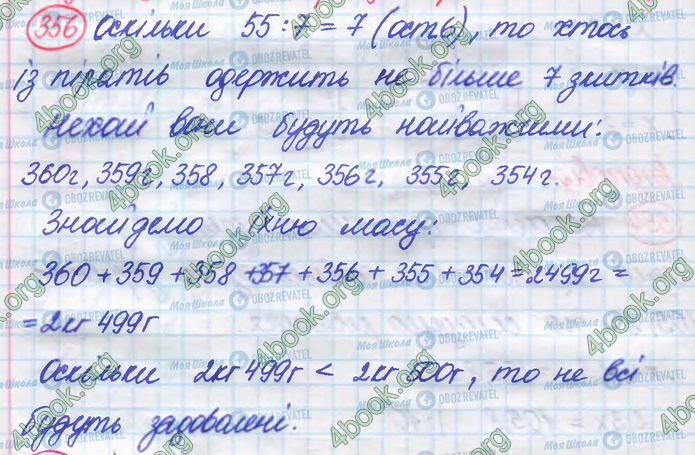 356 Оскільки 55 : 7 = 7 (ост.6), то хтось
із піратів одержить не більше 7 злитків.
Нехай вони будуть найважчими:
360г, 359г, 358, 357г, 356г, 355г, 354г.
Знайдемо їхню масу:
360 + 359 + 358 + 357 + 356 + 355 + 354 = 2499г =
= 2кг 499г
Оскільки 2кг 499г < 2кг 500г, то не всі
будуть задоволені.